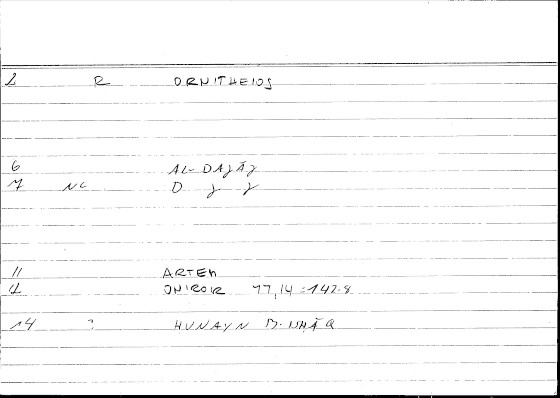 2 R ORNITHEIOS
6 AL-DAJĀJ
7 NC D J J
11 ARTEM
12 ONIROR 77,14=142.8
14 ? HUNAYN B. ISHĀQ